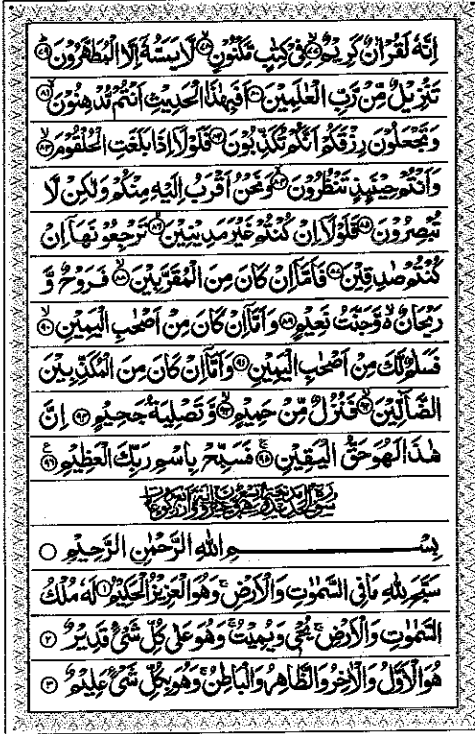 اِنَّهٗ لَقُرْاٰنٌ كَرِيْمٌ ۙ﴿۷۷﴾ فِيْ كِتٰبٍ مَّكْنُوْنٍ ۙ﴿۷۸﴾ لَّا يَمَسُّهٗٓ اِلَّا الْمُطَهَّرُوْنَ ؕ﴿۷۹﴾
تَنْزِيْلٌ مِّنْ رَّبِّ الْعٰلَمِيْنَ ﴿۸۰﴾ اَفَبِهٰذَا الْحَدِيْثِ اَنْتُمْ مُّدْهِنُوْنَ ۙ﴿۸۱﴾
وَتَجْعَلُوْنَ رِزْقَكُمْ اَنَّكُمْ تُكَذِّبُوْنَ ﴿۸۲﴾ فَلَوْلَاۤ اِذَا بَلَغَتِ الْحُلْقُوْمَ ۙ﴿۸۳﴾
وَاَنْتُمْ حِيْنَئِذٍ تَنْظُرُوْنَ ۙ﴿۸۴﴾ وَنَحْنُ اَقْرَبُ اِلَيْهِ مِنْكُمْ وَلٰكِنْ لَّا
تُبْصِرُوْنَ ﴿۸۵﴾ فَلَوْلَاۤ اِنْ كُنْتُمْ غَيْرَ مَدِيْنِيْنَ ۙ﴿۸۶﴾ تَرْجِعُوْنَهَاۤ اِنْ
كُنْتُمْ صٰدِقِيْنَ ﴿۸۷﴾ فَاَمَّاۤ اِنْ كَانَ مِنَ الْمُقَرَّبِيْنَ ۙ﴿۸۸﴾ فَرَوْحٌ وَّ
رَيْحَانٌ ۙ وَّجَنَّتُ نَعِيْمٍ ﴿۸۹﴾ وَاَمَّاۤ اِنْ كَانَ مِنْ اَصْحٰبِ الْيَمِيْنِ ۙ﴿۹۰﴾
فَسَلٰمٌ لَّكَ مِنْ اَصْحٰبِ الْيَمِيْنِ ؕ﴿۹۱﴾ وَاَمَّاۤ اِنْ كَانَ مِنَ الْمُكَذِّبِيْنَ
الضَّآلِّيْنَ ۙ﴿۹۲﴾ فَنُزُلٌ مِّنْ حَمِيْمٍ ۙ﴿۹۳﴾ وَّتَصْلِيَةُ جَحِيْمٍ ﴿۹۴﴾ اِنَّ
هٰذَا لَهُوَ حَقُّ الْيَقِيْنِ ۚ﴿۹۵﴾ فَسَبِّحْ بِاسْمِ رَبِّكَ الْعَظِيْمِ ﴿۹۶﴾
بِسْمِ اللّٰهِ الرَّحْمٰنِ الرَّحِيْمِ ○
سَبَّحَ لِلّٰهِ مَا فِي السَّمٰوٰتِ وَالْاَرْضِ ۚ وَهُوَ الْعَزِيْزُ الْحَكِيْمُ ﴿۱﴾ لَهٗ مُلْكُ
السَّمٰوٰتِ وَالْاَرْضِ ۚ يُحْيٖ وَيُمِيْتُ ۚ وَهُوَ عَلٰى كُلِّ شَيْءٍ قَدِيْرٌ ﴿۲﴾
هُوَ الْاَوَّلُ وَالْاٰخِرُ وَالظَّاهِرُ وَالْبَاطِنُ ۚ وَهُوَ بِكُلِّ شَيْءٍ عَلِيْمٌ ﴿۳﴾